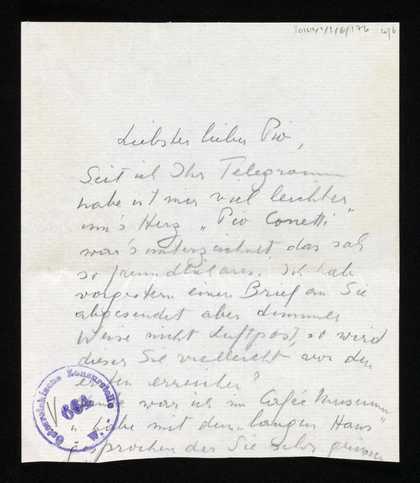 Liebster lieber Pio,
Seit ich Ihr Telegramm
habe ist mir viel leichter
um's Herz „Pio Canetti"
war's unterzeichnet das sah
so freundlich aus. Ich hab
vorgestern einen Brief an Sie
abgesendet aber dummer
Weise nicht Luftpost, so wird
dieser Sie vielleicht vor dem
ersten erreichen?
war ich im Café Museum
u habe mit dem „langen Hans"
gesprochen der Sie sehr grüssen
Österreichische Zensurstelle
664
W.